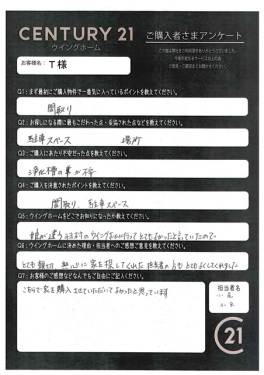 CENTURY 21
ウイングホーム
ご購入者さまアンケート
お客様名： T 様
Q1：まず最初にご購入物件で一番気に入っているポイントを教えてください。
間取り
Q2：お探しになる際に最もこだわった点・妥協された点などを教えてください。
駐車スペース 場所
Q3：ご購入にあたり不安だった点を教えてください。
浄化槽の事が不
Q4：ご購入を決意されたポイントを教えてください。
間取り、駐車スペース
Q5：ウイングホームをどこでお知りになったか教えてください。
Q6：ウイングホームに決めた理由・担当者へのご感想ご意見を教えてください。
とても親切 熱心に家を探してくれた 担当者の方もとてもよくしてくれました
Q7：お客様のご感想などなんでもご自由にご記入ください。
こちらで家を購入させていただいてよかったと思っています
担当者名
21